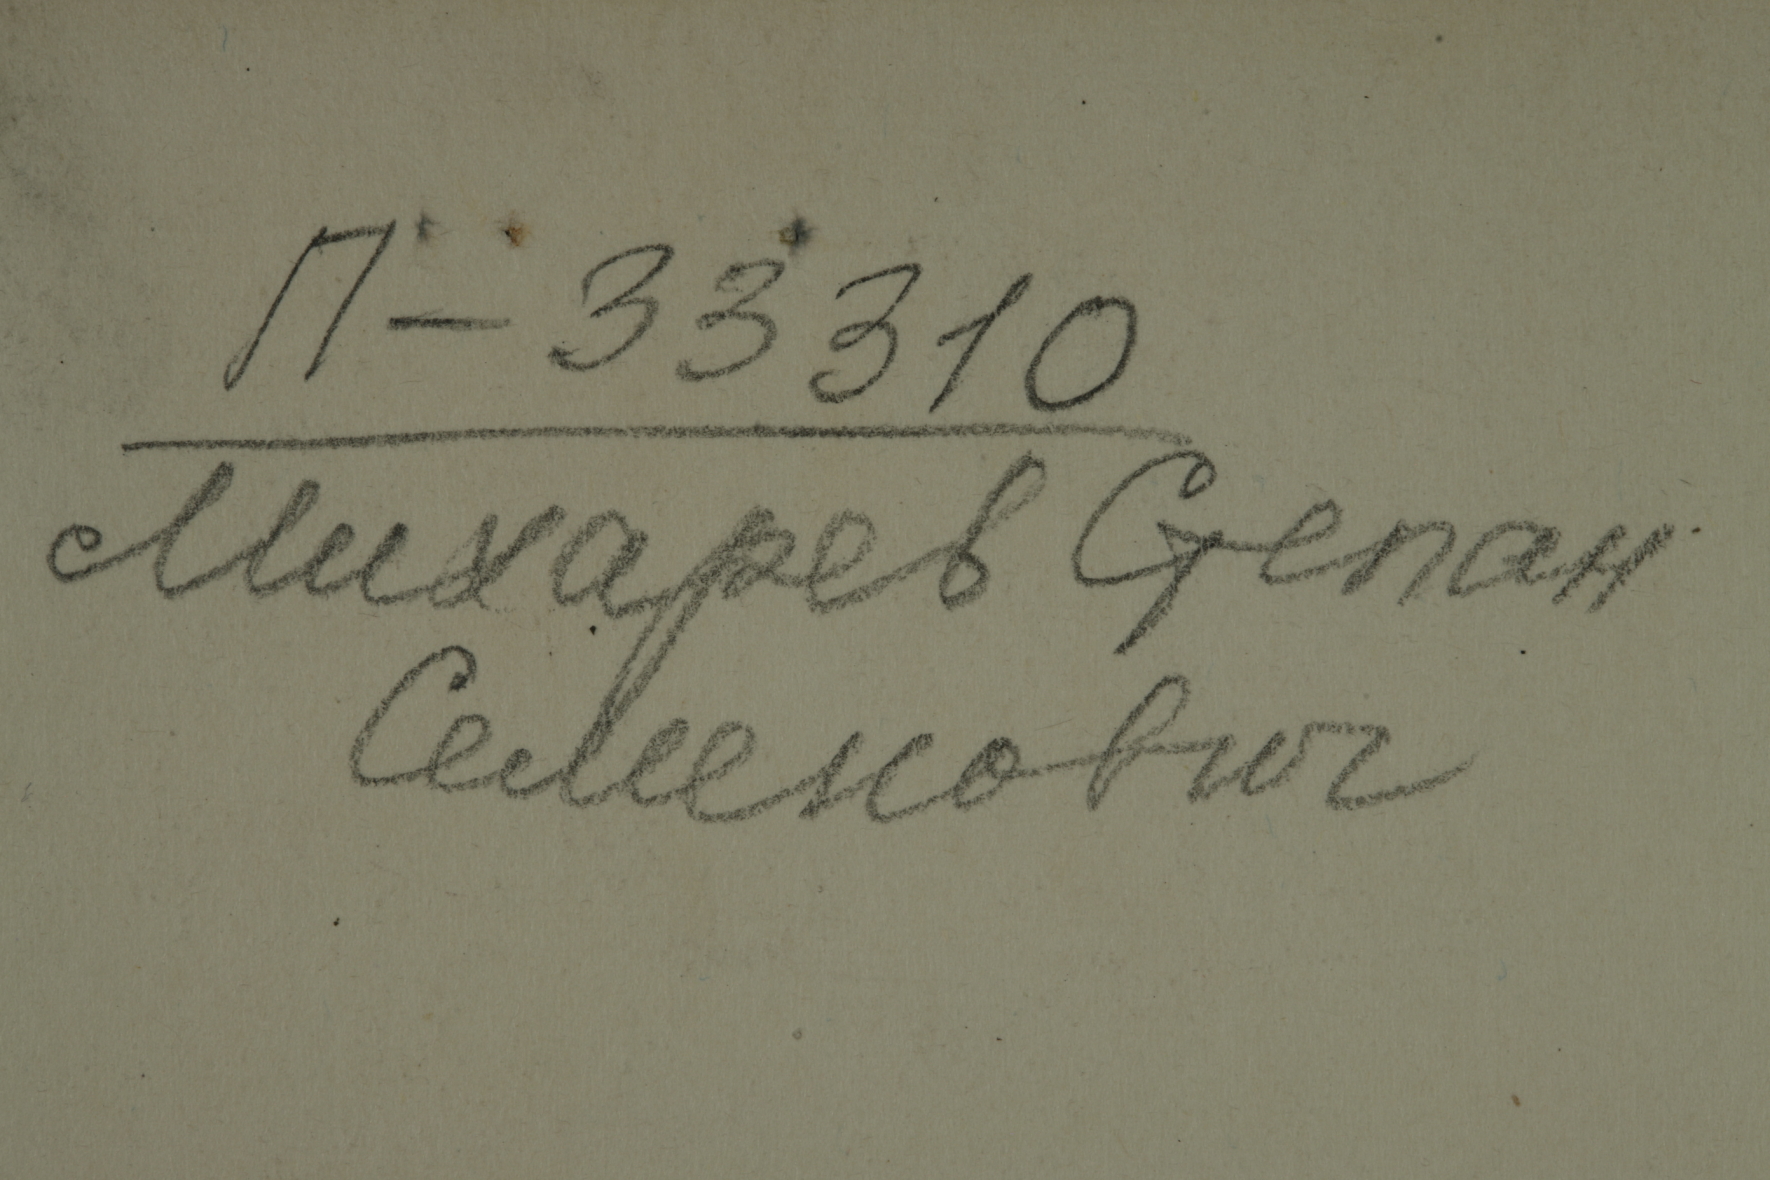 П-33310
Михарев Степан
Семенович